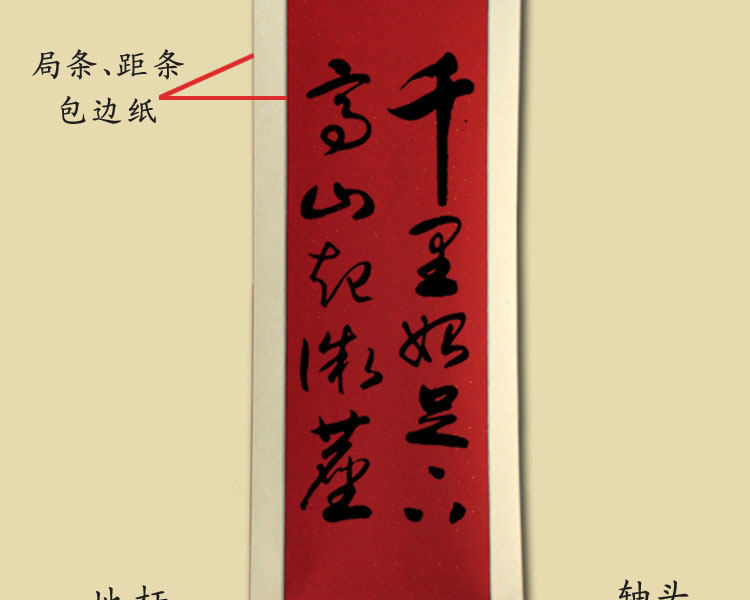 局条、距条
包边纸
千里始足下
高山起微尘
地杆
轴头